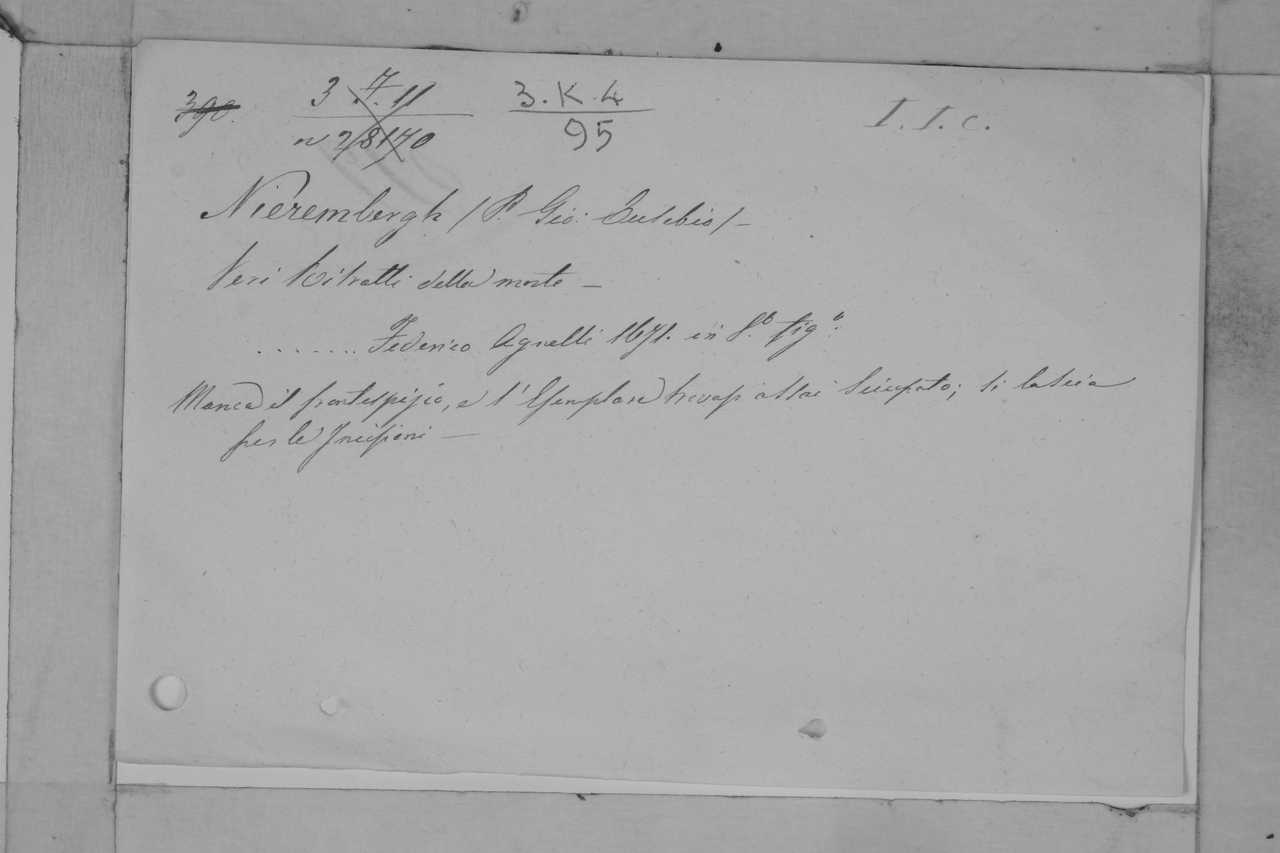 390. 3 7.11 3.K.4 I.I.c.
n 28170 95
Nierembergh (P. Gio: Eusebio) –
Veri Ritratti della morte –
........ Federico Agnelli 1671. in 8.º fig.º:
Manca il frontespizio, e l'Esemplare trovasi assai sciupato; si lascia
per le Incisioni –